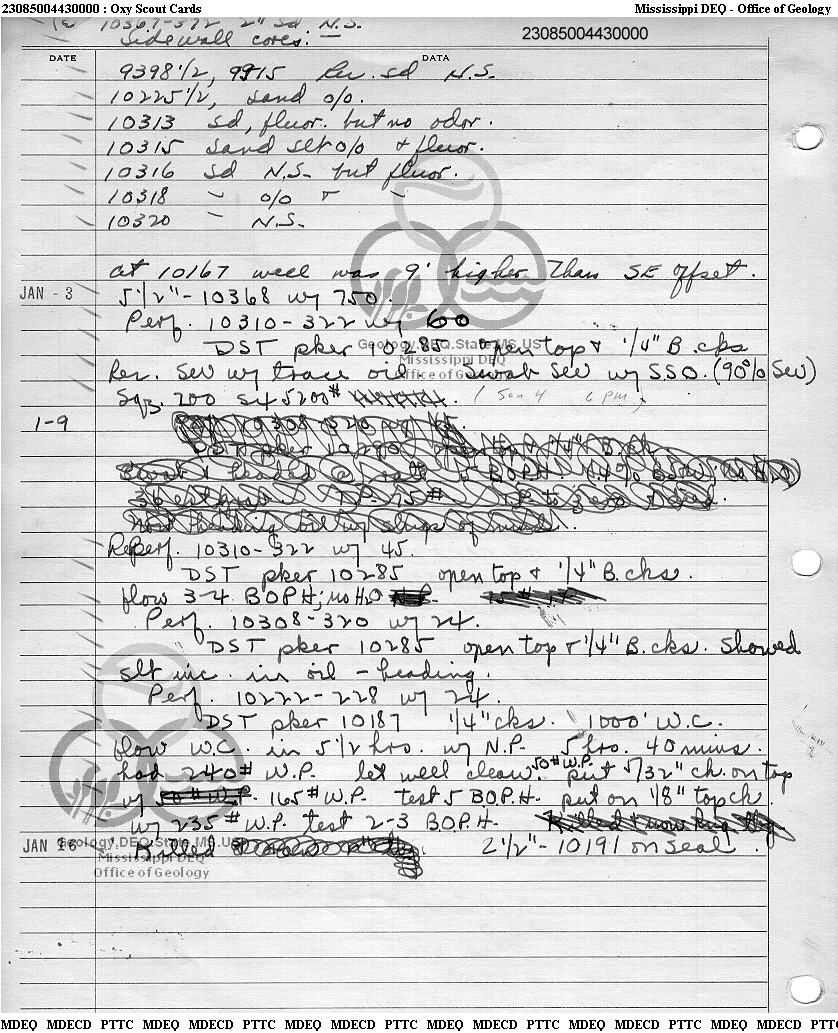 23085004430000 : Oxy Scout Cards
Mississippi DEQ - Office of Geology
10367-372 2" sd N.S.
Sidewall cores:
23085004430000
DATE
DATA
9398 1/2, 9915 Rec. sd N.S.
10225 1/2, sand o/o.
10313 sd, fluor. but no odor.
10315 sand slt o/o & fluor.
10316 sd N.S. but fluor.
10318 " o/o & "
10320 " N.S.
at 10167 well was 9' higher Than SE offset.
JAN - 3
5 1/2" - 10368 w/ 750.
Perf. 10310-322 w/ 60
DST pker 10285 open top & 1/4" B.cks
Rec. SW w/ trace oil swab SW w/ S.S.O. (90% SW)
Sqz. 200 sx 5200# (Jan 4 6 pm)
1-9
Reperf. 10310-322 w/ 45.
DST pker 10285 open top & 1/4" B.cks.
flow 3-4 BOPH; no H2O
Perf. 10308-320 w/ 24.
DST pker 10285 open top & 1/4" B.cks. Showed
slt inc. in oil - heading.
Perf. 10222-228 w/ 24.
DST pker 10187 1/4" cks. 1000' W.C.
flow W.C. in 5 1/2 hrs. w/ N.P. 5 hrs. 40 mins.
had 240# W.P. let well clean. 50# W.P. put 5/32" ch. on top
w/ 165# W.P. test 5 B.O.P.H. put on 1/8" top ch.
w/ 235# W.P. test 2-3 B.O.P.H.
JAN 16
Killed 2 1/2" - 10191 on seal
Geology.DEQ.State.MS.US
Mississippi DEQ
Office of Geology
Geology.DEQ.State.MS.US
Mississippi DEQ
Office of Geology
MDEQ MDECD PTTC MDEQ MDECD PTTC MDEQ MDECD PTTC MDEQ MDECD PTTC MDEQ MDECD PTTC MDEQ MDECD PTTI